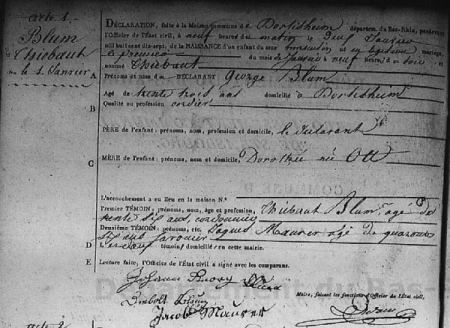 acte 1.
Blum
Thiebaut
né le 1. Janvier
DÉCLARATION, faite à la Maison commune d à Bortisheim départem. du Bas-Rhin, pardevant
l'Officier de l'État civil, à neuf heures du matin le deux Janvier
mil huit cent dix-sept, de la NAISSANCE d'un enfant du sexe masculin né en légitime mariage,
le premier du mois de Janvier à neuf heures du soir
nommé Thiebaut
A
Prénoms et nom d DÉCLARANT George Blum
Agé de trente trois ans domicilié à Bortisheim
B
Qualité ou profession
PÈRE de l'enfant : prénoms, nom, profession et domicile, le déclarant
C
MÈRE de l'enfant : prénoms, nom et domicile, Dorothée née Ott
L'accouchement a eu lieu en la maison N.º
Premier TÉMOIN, prénoms, nom, âge et profession, Thiebaut Blum, agé de
trente six ans, cordonnier
Deuxième TÉMOIN, prénoms, etc. Jaques Maurer agé de quarante
six ans
D
témoin domiciliés en cette mairie.
E
Lecture faite, l'Officier de l'État civil a signé avec les comparans.
Maire, faisant les fonctions d'Officier de l'État civil,
Diebolt Blum
Jacob Maurer